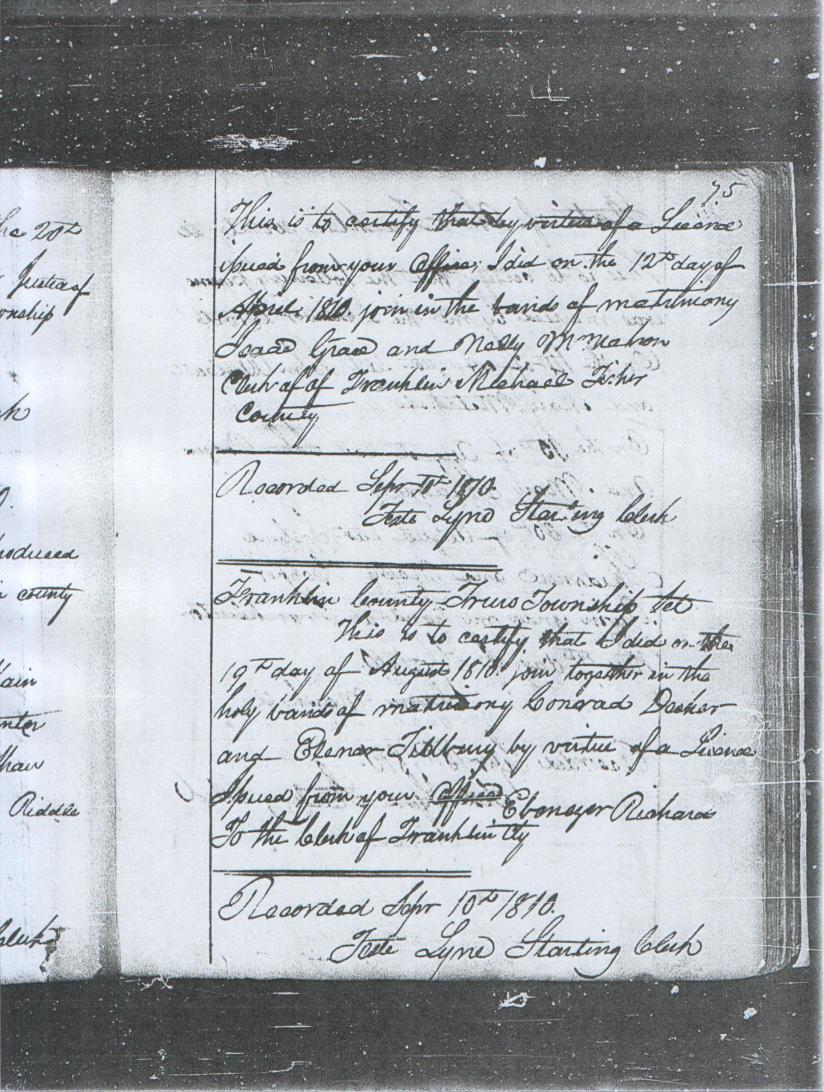 he 20th
Justes of
nship
k
oduced
county
ain
nter
haw
Riddle
Clerk
75
This is to certify that by virtue of a Licence
issued from your office, I did on the 12th day of
April 1810 join in the bands of matrimony
Isaac Grace and Nelly McMahon
Clerk of of Franklin Michael Fisher
County
Recorded Sepr 10th 1810.
Teste Lyne Starling Clerk
Franklin County Truro Township Set
This is to certify that I did on the
19th day of August 1810 join together in the
holy bands of matrimony Conrad Decker
and Elenor Tillbury by virtue of a Licence
Issued from your office Ebenezer Richards
To the Clerk of Franklin Cty
Recorded Sepr 10th 1810.
Teste Lyne Starling Clerk